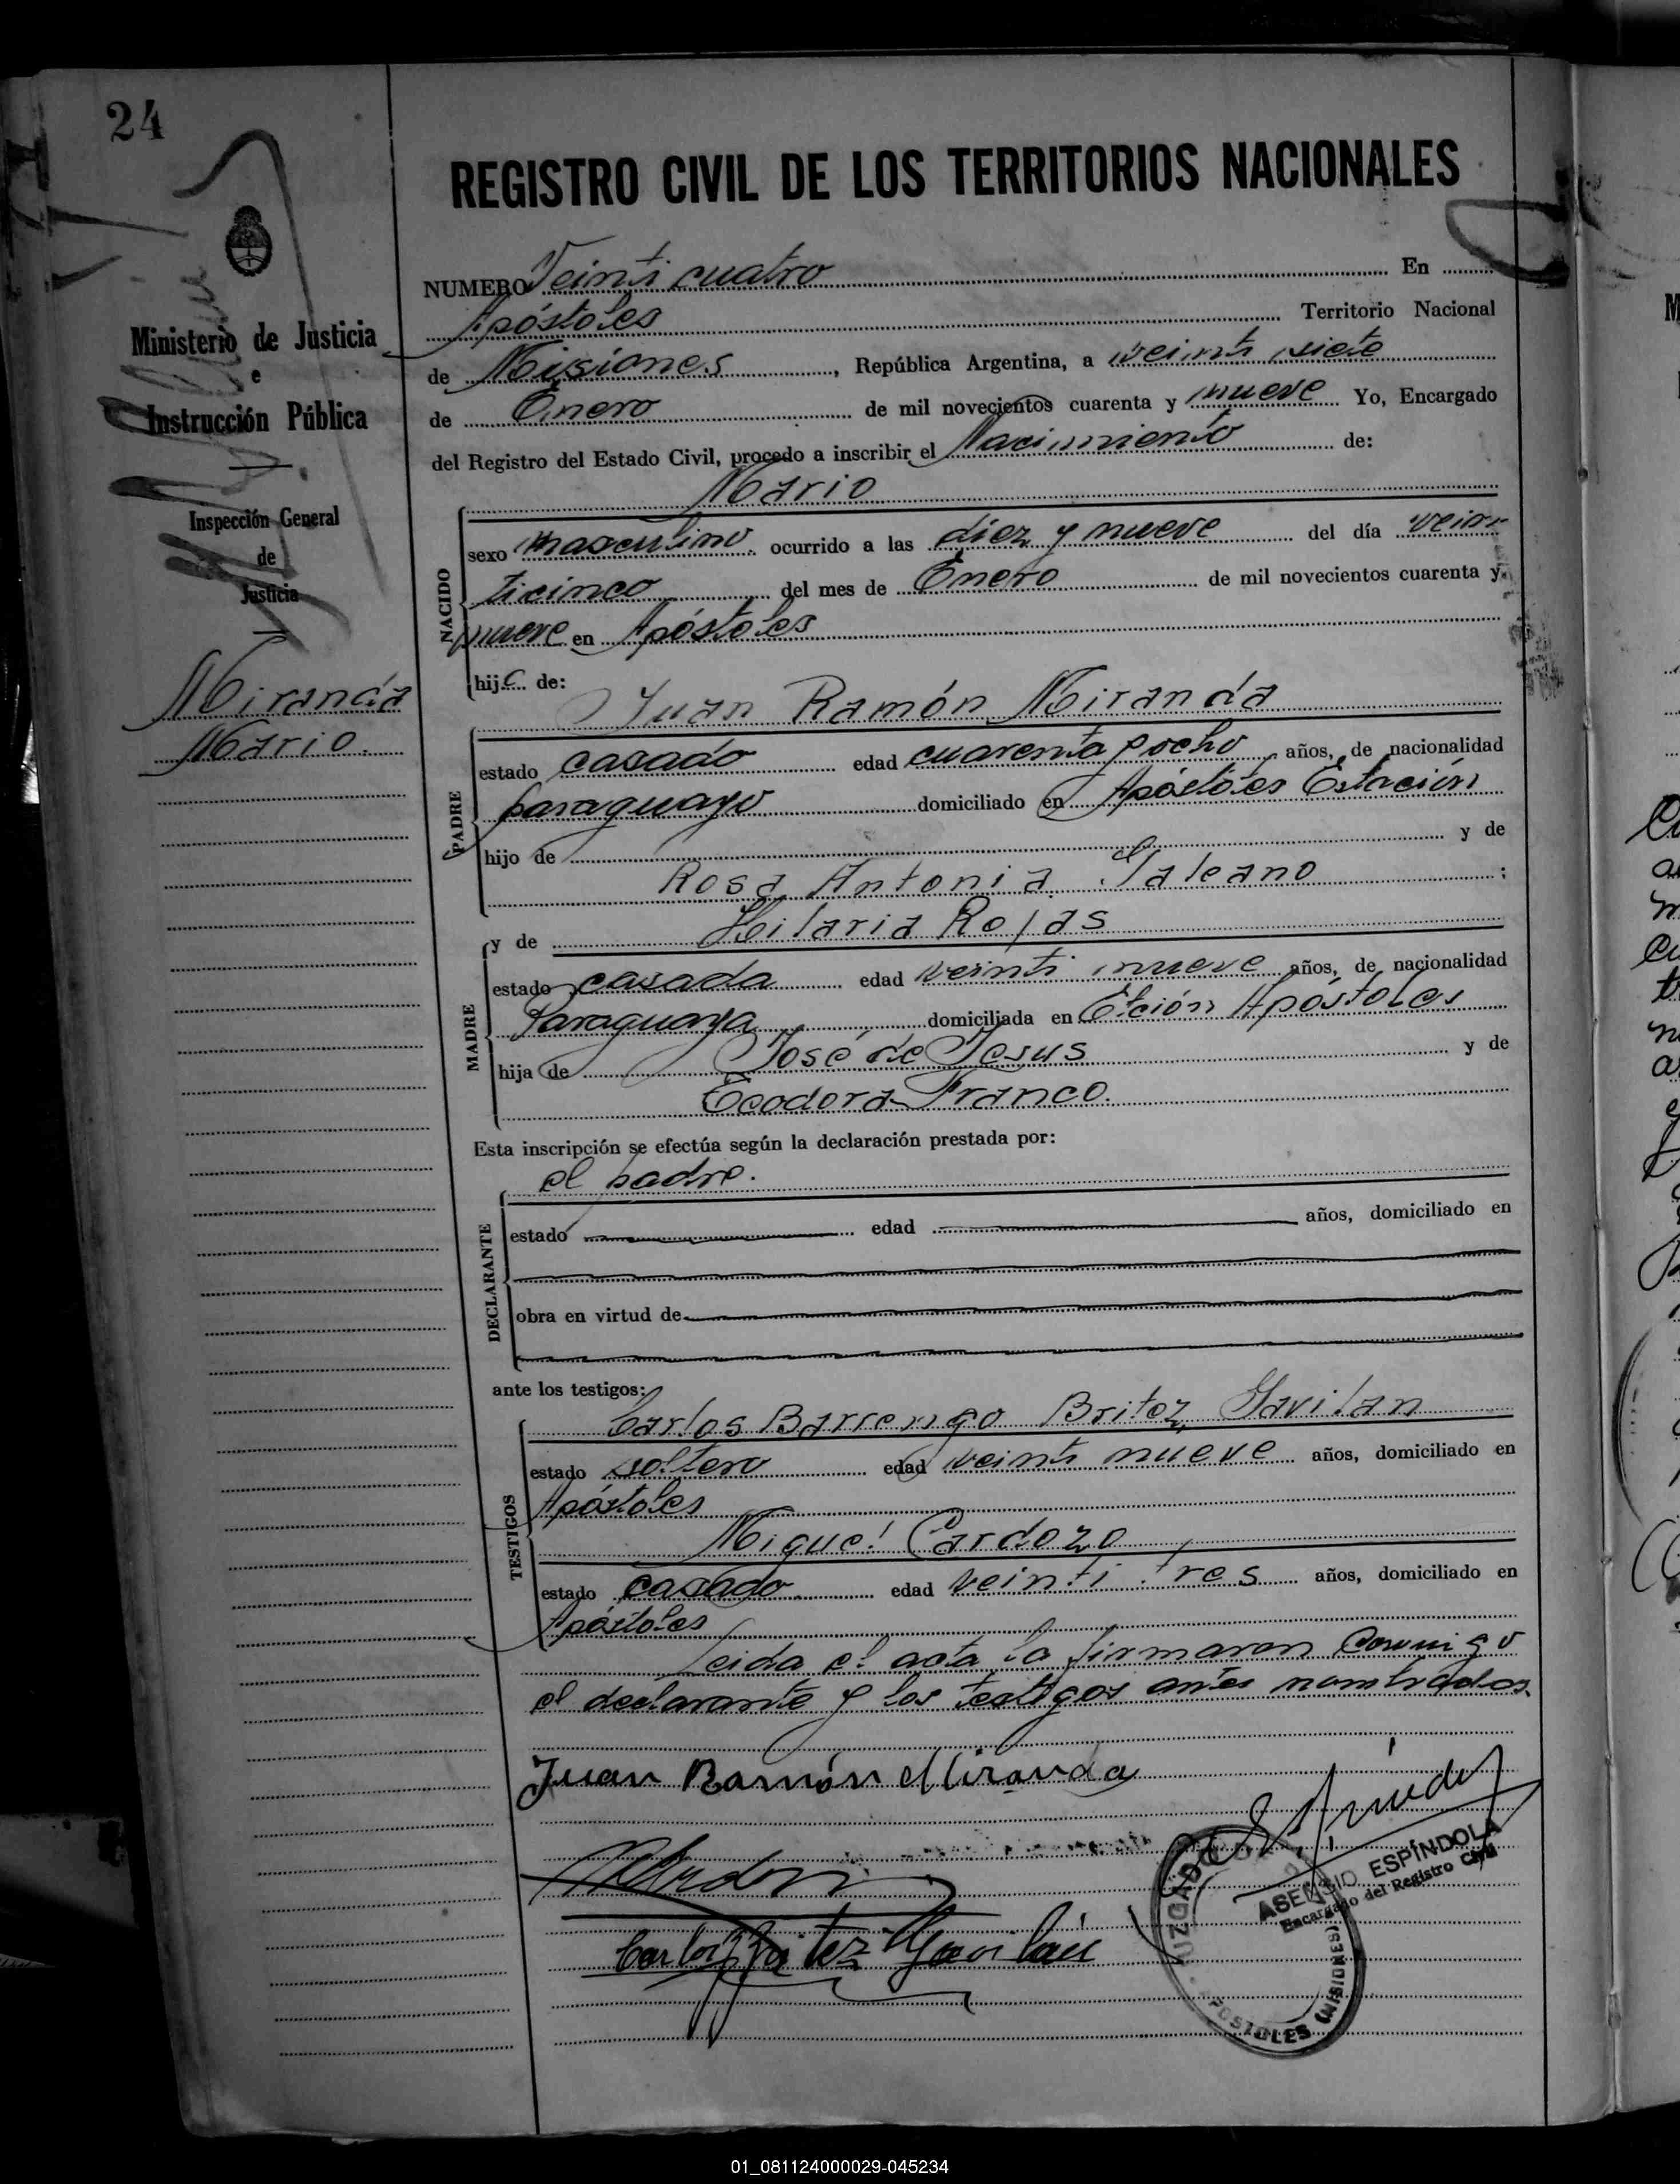 24
REGISTRO CIVIL DE LOS TERRITORIOS NACIONALES
Ministerio de Justicia
e
Instrucción Pública
Inspección General
de
Justicia
Miranda
Mario.
NUMERO Veinti cuatro En
Apóstoles Territorio Nacional
de Misiones, República Argentina, a veinti siete
de Enero de mil novecientos cuarenta y nueve Yo, Encargado
del Registro del Estado Civil, procedo a inscribir el Nacimiento de:
Mario
NACIDO
sexo masculino ocurrido a las diez y nueve del día vein-
ticinco del mes de Enero de mil novecientos cuarenta y
nueve en Apóstoles
hijo de:
Juan Ramón Miranda
PADRE
estado casado edad cuarenta y ocho años, de nacionalidad
paraguayo domiciliado en Apóstoles Estación
hijo de y de
Rosa Antonia Galeano ;
y de Hilaria Rojas
MADRE
estado casada edad veinti nueve años, de nacionalidad
Paraguaya domiciliada en Etción Apóstoles
hija de José de Jesus y de
Teodora Franco.
Esta inscripción se efectúa según la declaración prestada por:
el padre.
DECLARANTE
estado edad años, domiciliado en
obra en virtud de
ante los testigos:
Carlos Barrengo Britez Gavilan
TESTIGOS
estado soltero edad veinti nueve años, domiciliado en
Apóstoles
Miguel Cardozo
estado casado edad veinti tres años, domiciliado en
Apóstoles
Leida el acta la firmaron conmigo
el declarante y los testigos antes nombrados.
Juan Ramón Miranda
Carlos Britez Gavilán
ASENSIO ESPÍNDOLA
Encargado del Registro Civil
JUZGADO
APOSTOLES (MISIONES)
01_081124000029-045234